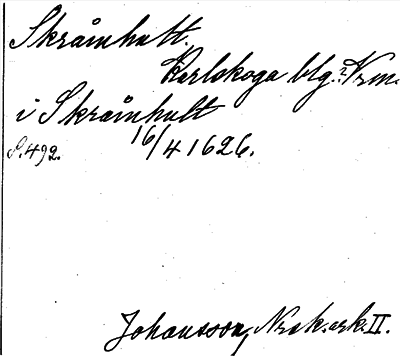 Skråmhult.
Karlskoga blg. Vrm.
i Skråmhult
S. 492. 16/4 1626.
Johansson, Nrak. ark. II.